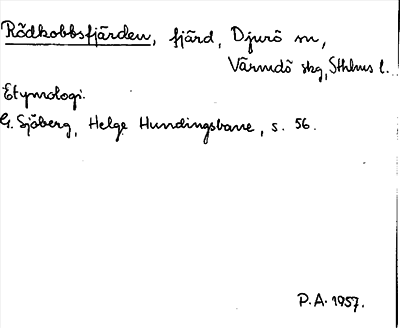 Rödkobbsfjärden, fjärd, Djurö sn,
Värmdö skg, Sthlms l.
Etymologi.
G. Sjöberg, Helge Hundingsbane, s. 56.
P.A. 1957.